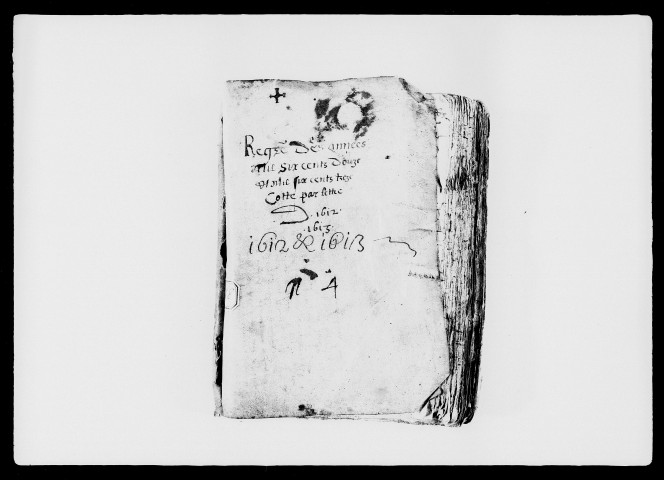 Regre Des années
Mil Six cents Douze
et Mil six cents treze
Cotte par lettre
D. 1612.
1613.
1612 & 1613
n° 4